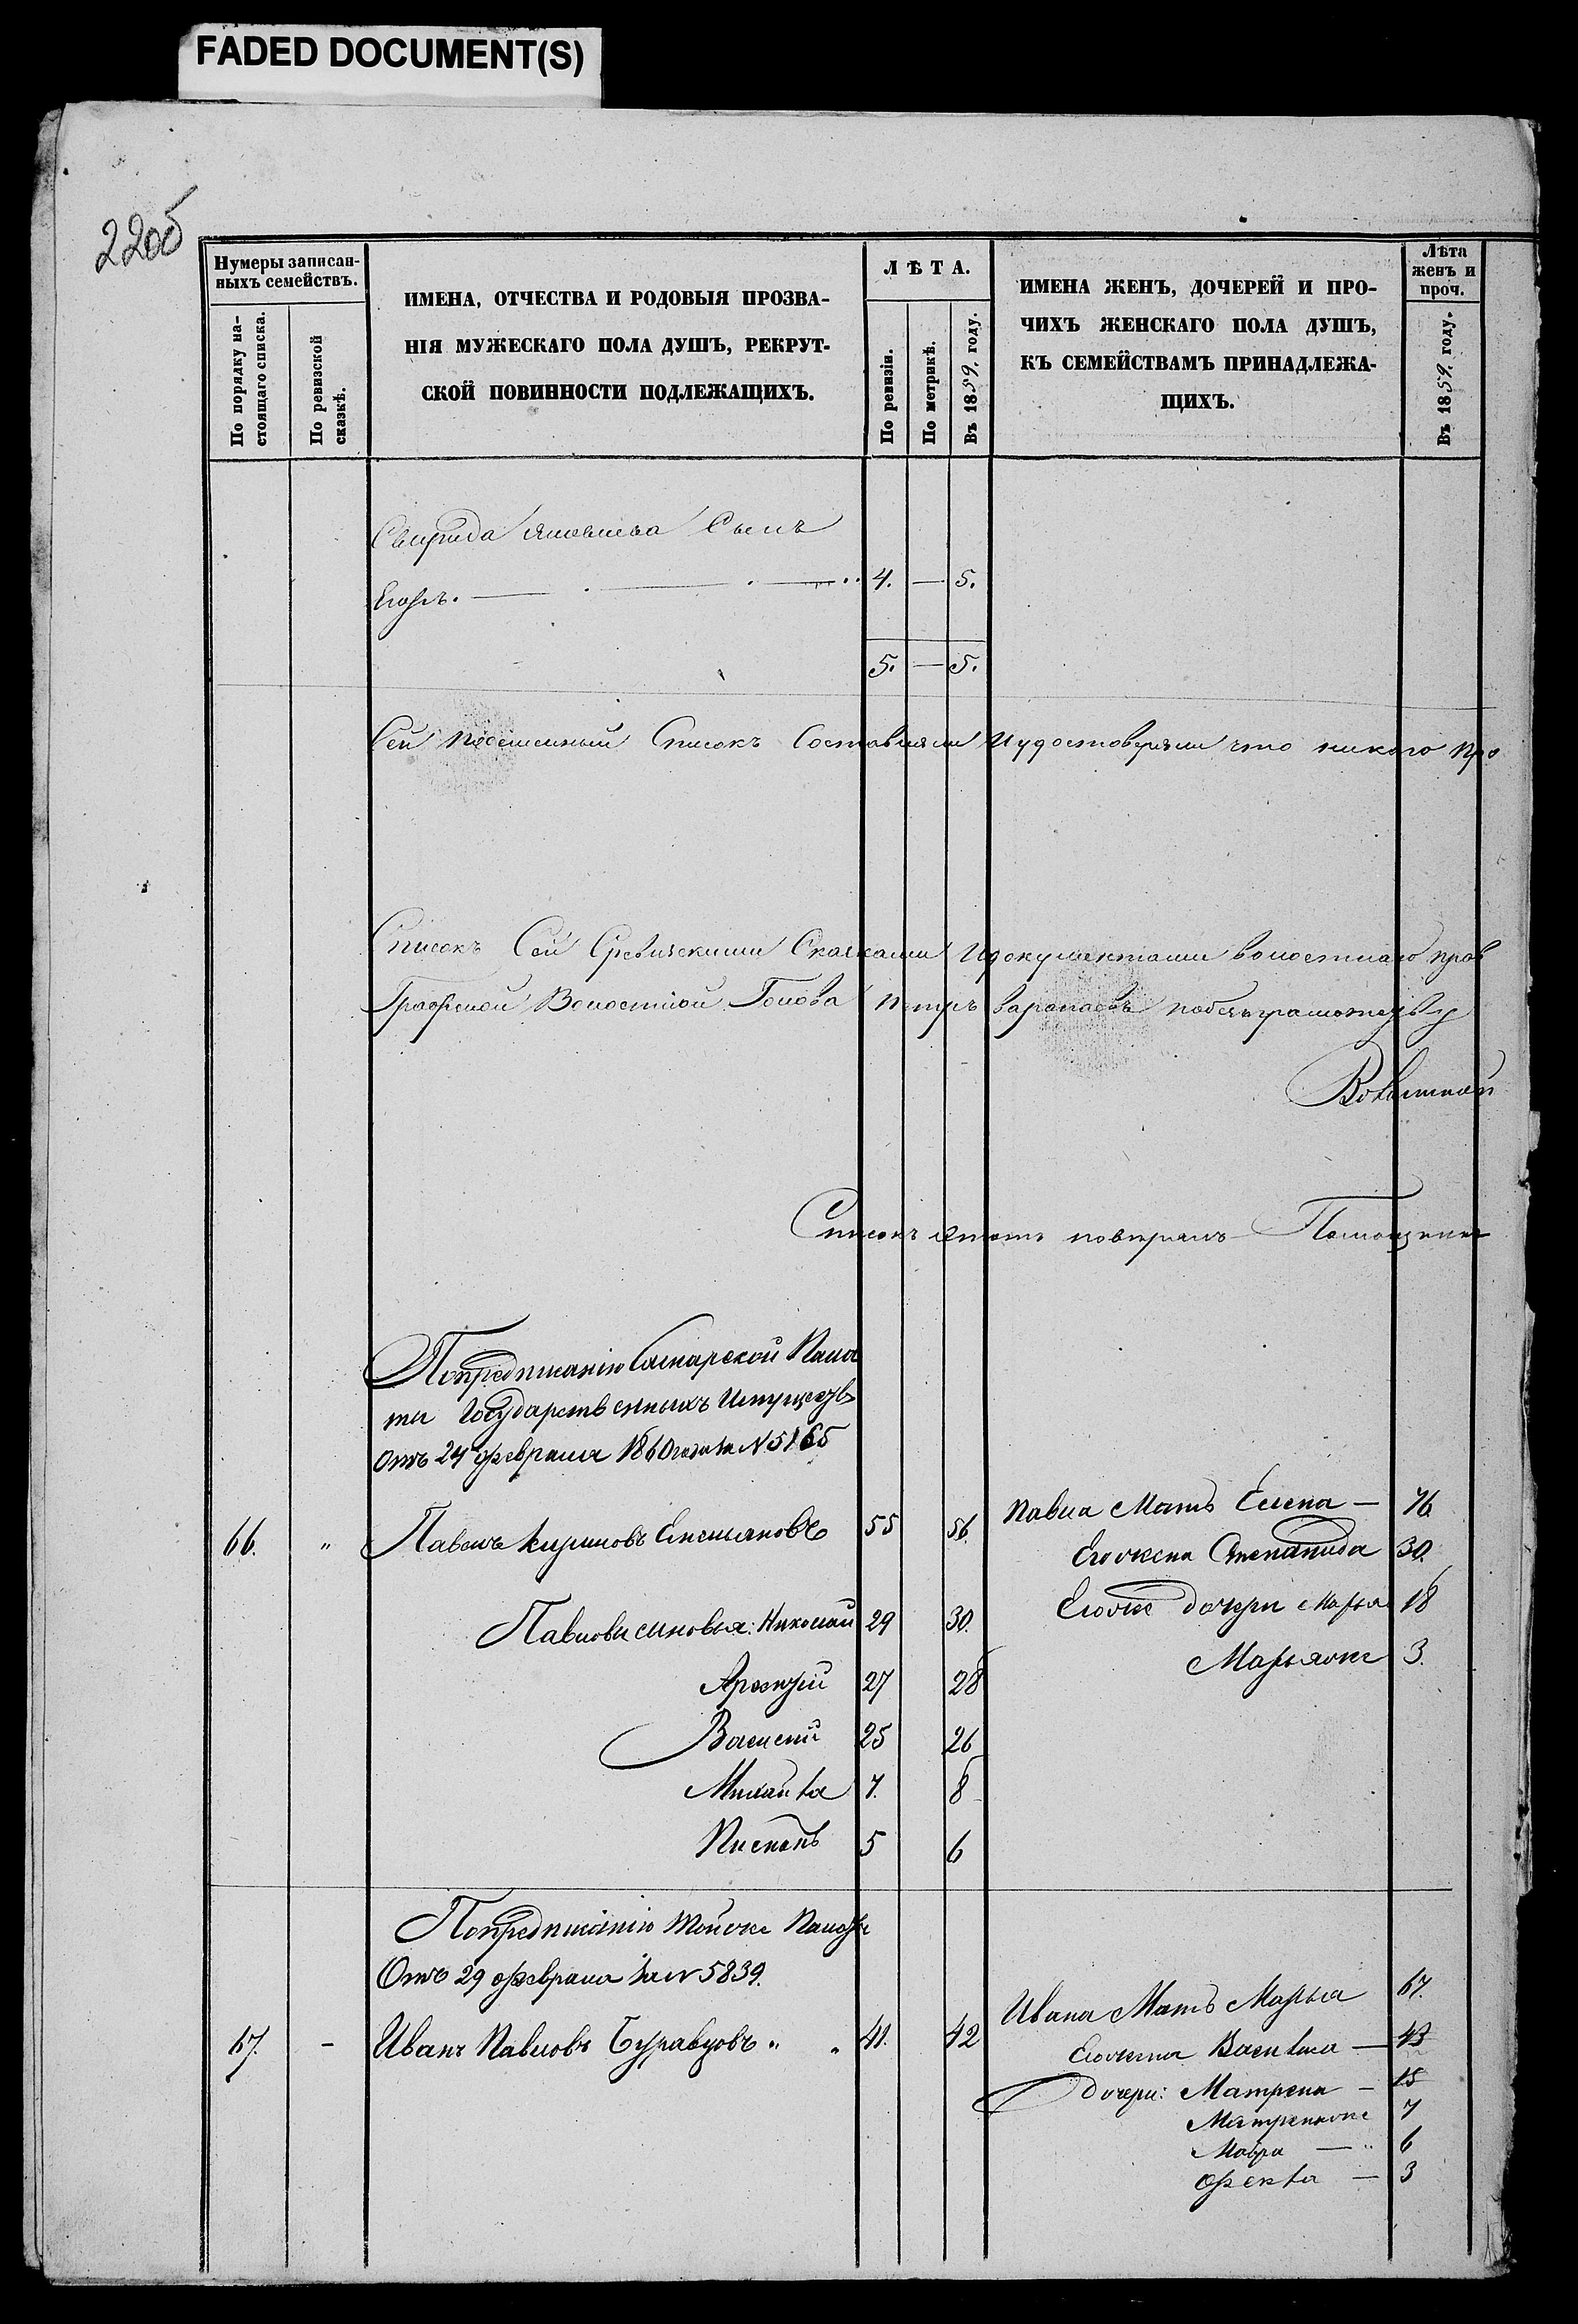 FADED DOCUMENT(S)
22об
Нумеры записан-
ныхъ семействъ.
По порядку на-
стоящаго списка.
По ревизской
сказкѣ.
ИМЕНА, ОТЧЕСТВА И РОДОВЫЯ ПРОЗВА-
НІЯ МУЖЕСКАГО ПОЛА ДУШЪ, РЕКРУТ-
СКОЙ ПОВИННОСТИ ПОДЛЕЖАЩИХЪ.
ЛѢТА.
По ревизіи.
По метрикѣ.
Въ 1859. году.
ИМЕНА ЖЕНЪ, ДОЧЕРЕЙ И ПРО-
ЧИХЪ ЖЕНСКАГО ПОЛА ДУШЪ,
КЪ СЕМЕЙСТВАМЪ ПРИНАДЛЕЖА-
ЩИХЪ.
Лѣта
женъ и
проч.
Въ 1859. году.
Свирида Яковлева Сынъ
Егоръ. 4. — 5.
5. — 5.
Сей Списокъ Составляли И удостоверяли что никого про
Списокъ Сей Сревискими Сказками Идокументами волостнаго прав
Волостной Голова Петръ
Волостной
Списокъ поверялъ Помощникъ
Попредписанію Самарской Пала
ты Государственныхъ Имуществъ
Отъ 24 февраля 1860 года за N 5165
66. " Павелъ Кириловъ 55 56. Павла Мать Елена — 76
Его жена Степанида 30.
Павловы сыновья: Николай 29 30. Его же дочери Марья 18
Марья же 3.
Арсентій 27 28
Василій 25 26
Михайла 7. 8
5 6
Попредписанію Той же Палаты
Отъ 29 февраля за N 5839.
Ивана Мать Марья 67.
67. - Иванъ Павловъ Буравцовъ " " 41. 42 Его жена Василиса — 43
Дочери: Матрена — 15
Матрена же 7
Мавра — " 6
Фекла — 3